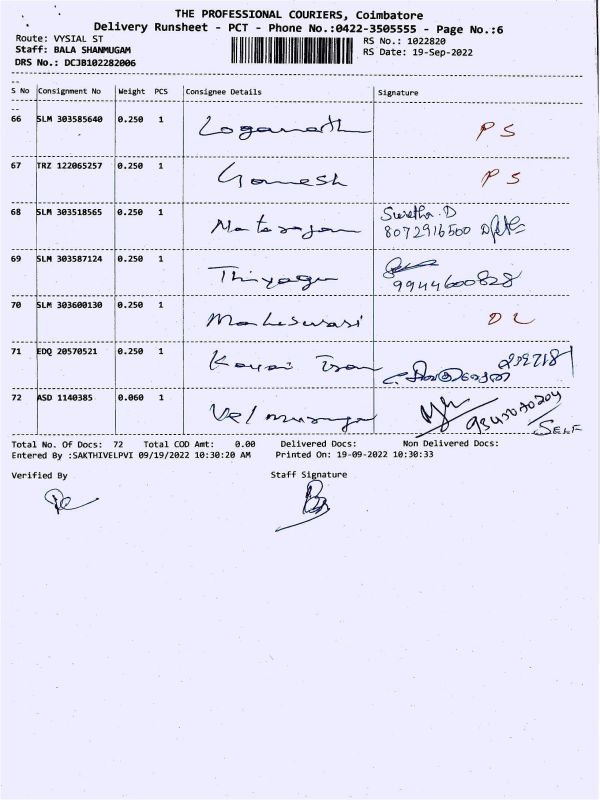 THE PROFESSIONAL COURIERS, Coimbatore
Delivery Runsheet - PCT - Phone No.:0422-3505555 - Page No.:6
Route: VYSIAL ST
Staff: BALA SHANMUGAM
DRS No.: DCJB102282006
RS No.: 1022820
RS Date: 19-Sep-2022
S No Consignment No Weight PCS Consignee Details Signature
66 SLM 303585640 0.250 1 Loganath PS
67 TRZ 122065257 0.250 1 Gomesh PS
68 SLM 303518565 0.250 1 Natarajan Swetha.D
8072916500
69 SLM 303587124 0.250 1 Thiyagu
9944600828
70 SLM 303600130 0.250 1 Maheswari DL
71 EDQ 20570521 0.250 1
72 ASD 1140385 0.060 1 Velmuruga
SELF
Total No. Of Docs: 72 Total COD Amt: 0.00 Delivered Docs: Non Delivered Docs:
Entered By :SAKTHIVELPVI 09/19/2022 10:30:20 AM Printed On: 19-09-2022 10:30:33
Verified By Staff Signature